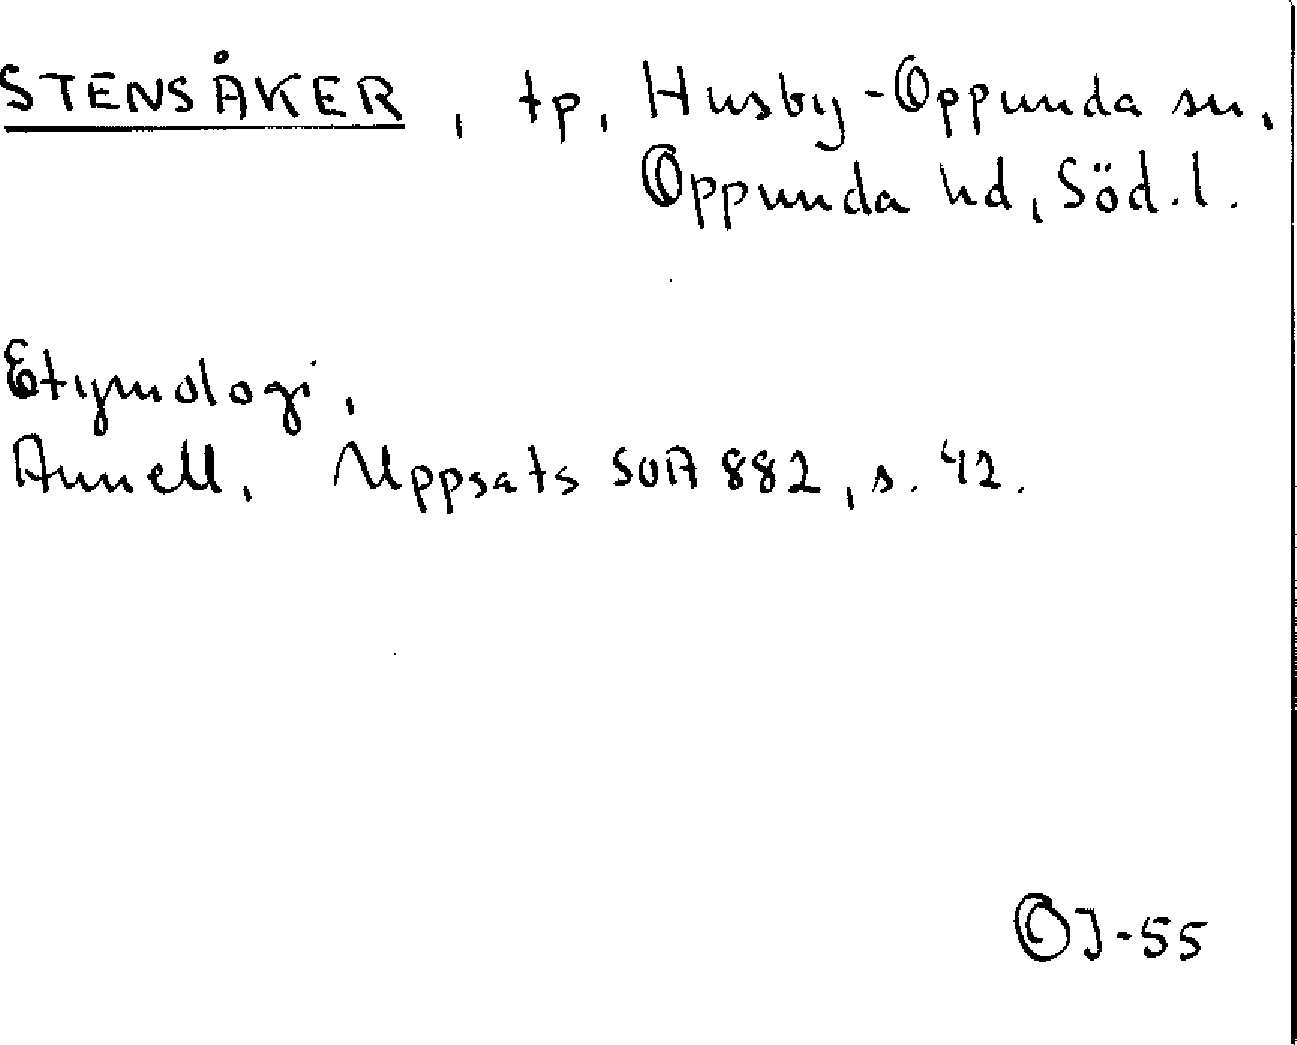 STENSÅKER, tp, Husby-Oppunda sn,
Oppunda hd, Söd.l.
Etymologi,
Annell, Uppsats SOA 882, s. 42.
OJ-55